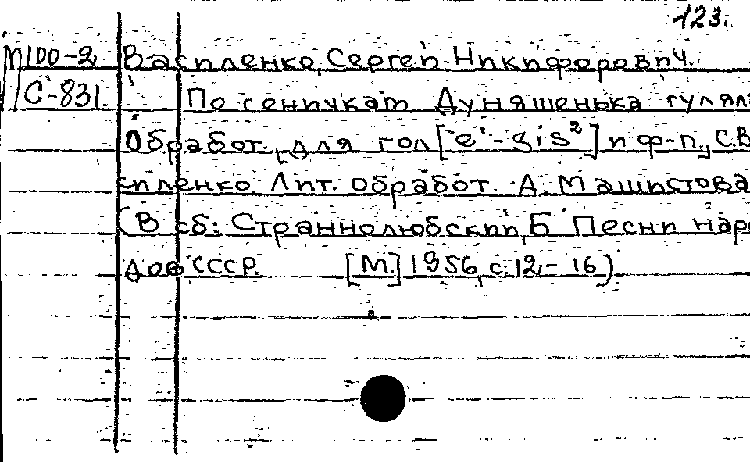 123.
М100-2 Василенко, Сергей Никифорович.
С-831 По сеничкам Дуняшенька гулял
Обработ. для гол [e'-gis²] и ф-п, С. В
силенко. Лит. обработ. А. Машистова
(В сб: Страннолюбский, Б Песни наро
дов СССР. [М.] 1956, с. 12-16).